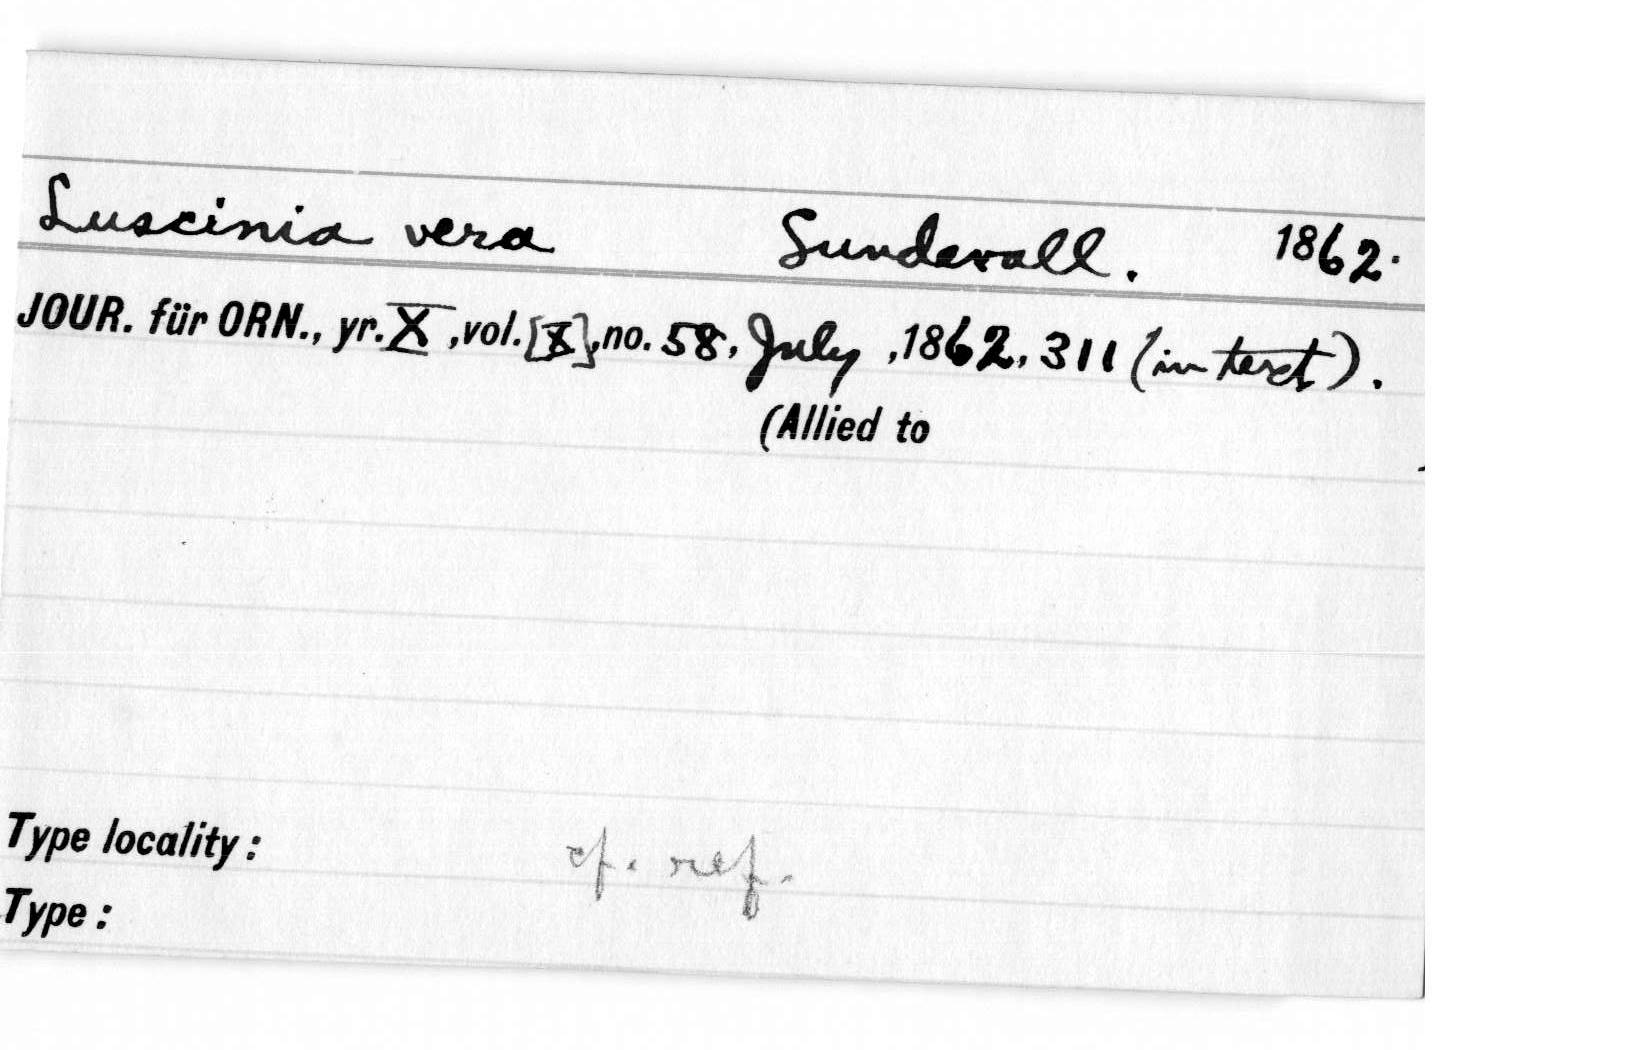 Luscinia vera Sundevall. 1862.
JOUR. für ORN., yr. X, vol. [X], no. 58, July, 1862, 311 (in text).
(Allied to
Type locality: cf. ref.
Type: